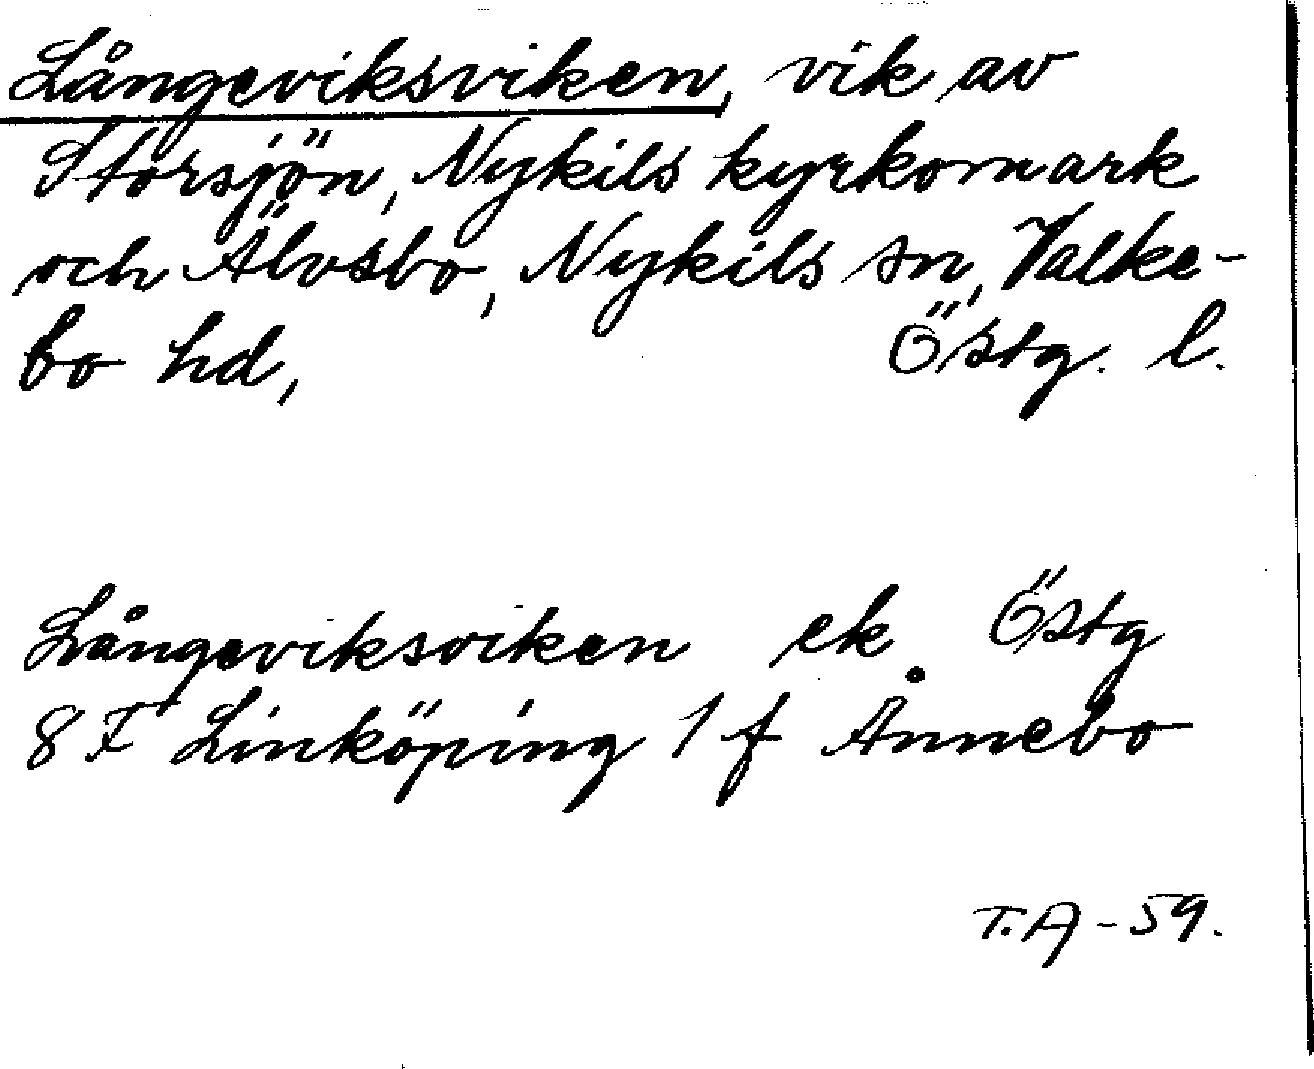 Långeviksviken, vik av
Storsjön, Nykils kyrkomark
och Älvsbo, Nykils sn, Valke-
bo hd, Östg. l.
Långeviksviken ek Östg
8 F Linköping 1 f Ånnebo
T.A-59.